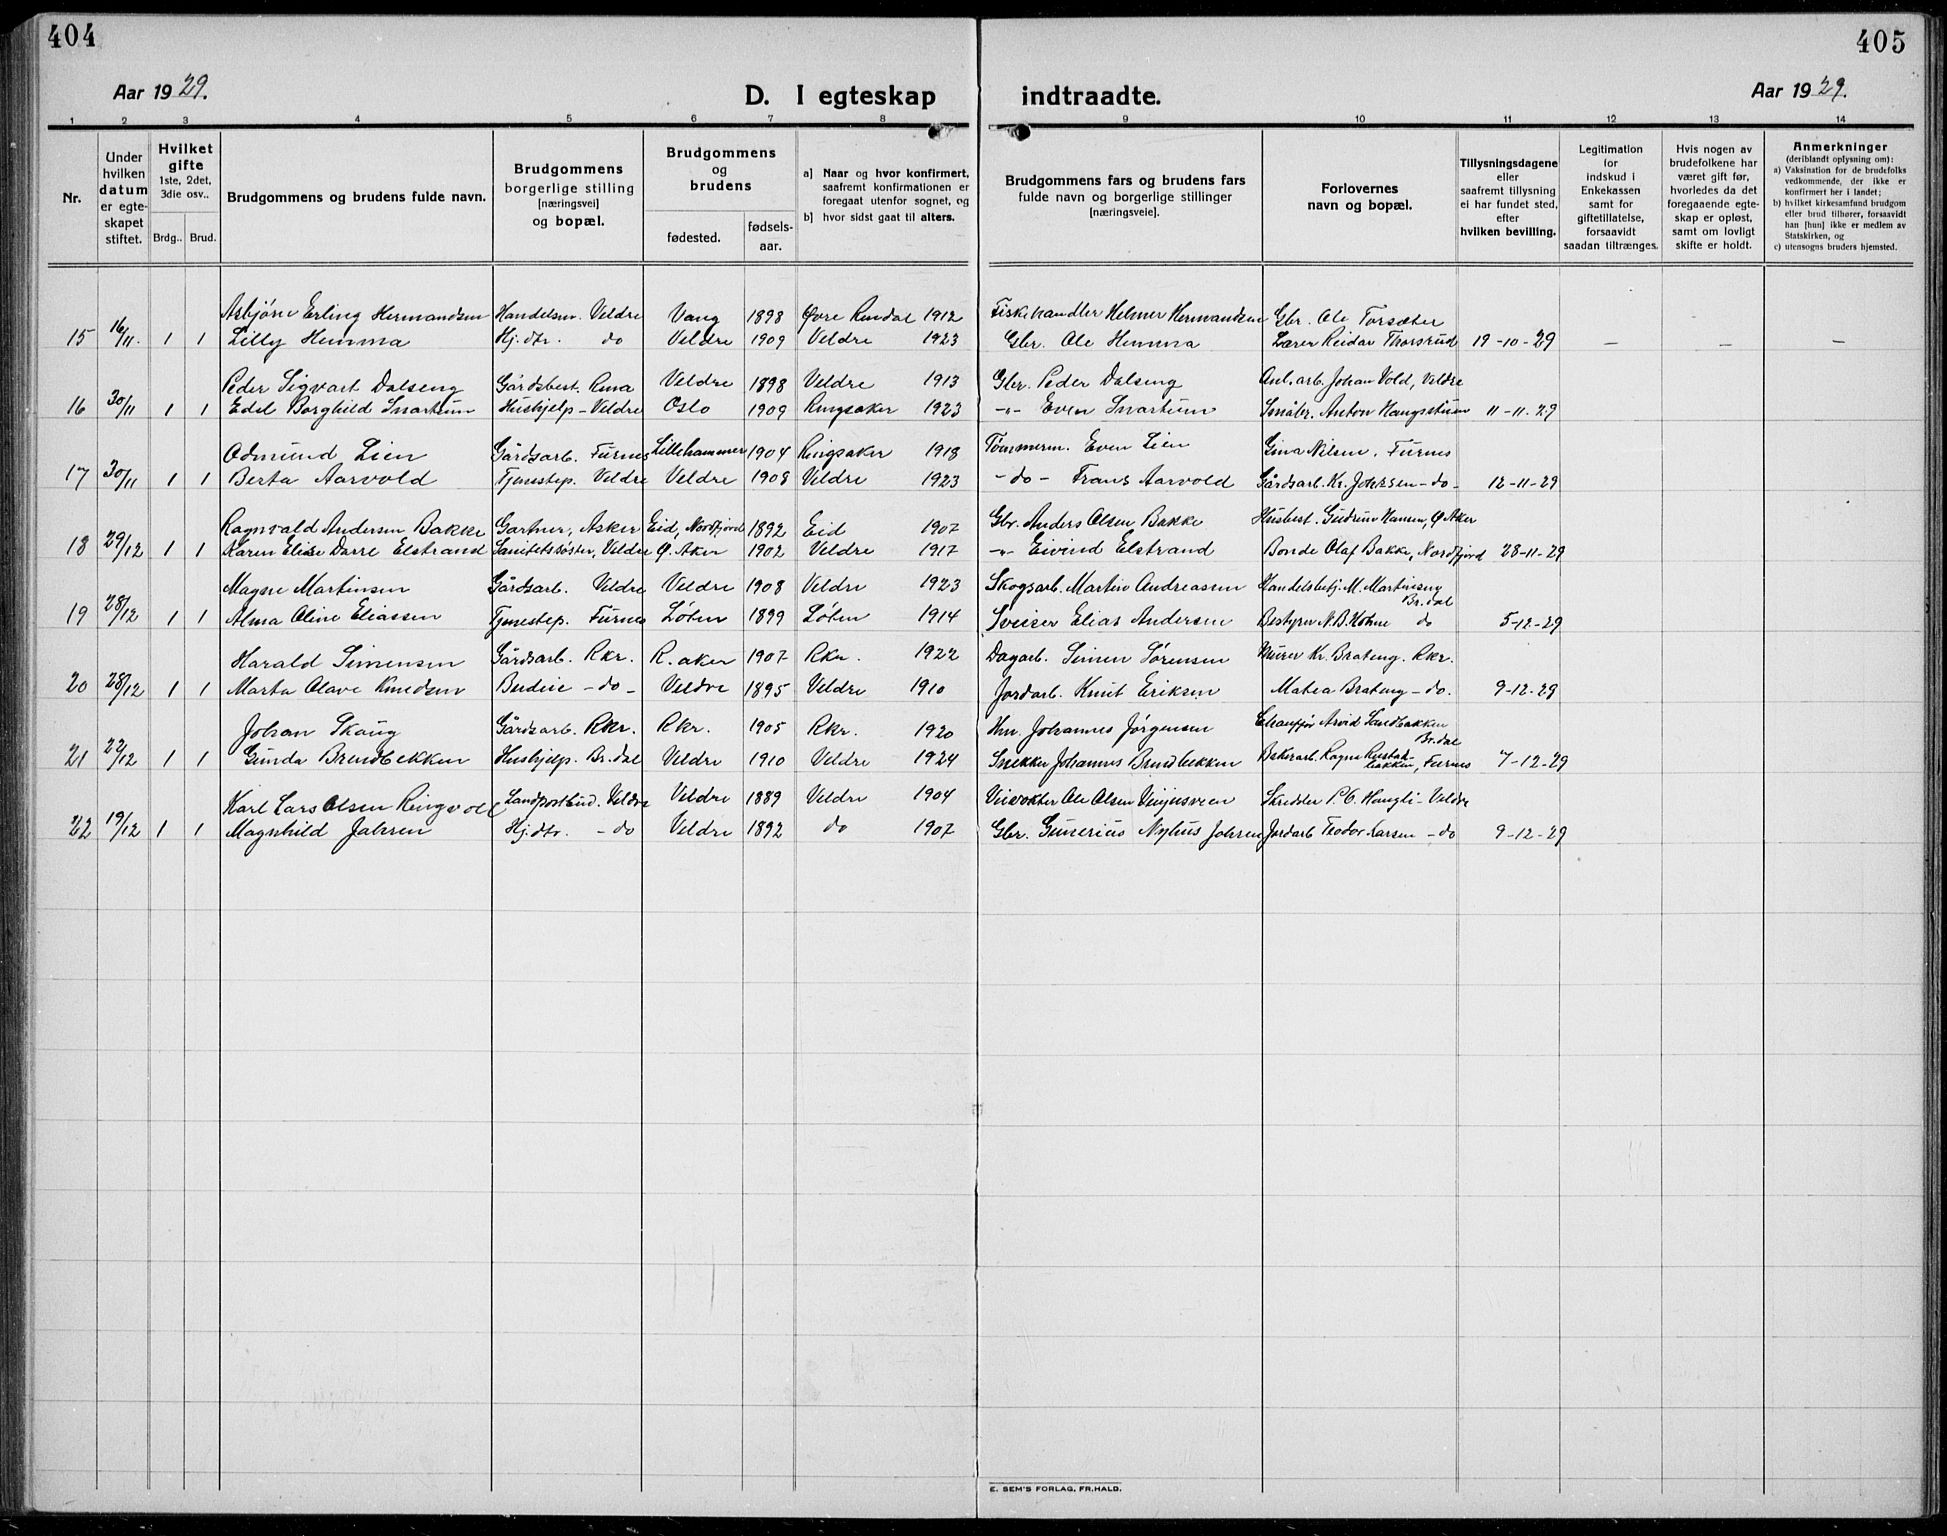 404
405
Aar 1929.
D. I egteskap indtraadte.
Aar 1929.
1 2 3 4 5 6 7 8 9 10 11 12 13 14
Nr.
Under hvilken datum er egte-skapet stiftet.
Hvilket gifte
1ste, 2det, 3die osv..
Brdg.. Brud.
Brudgommens og brudens fulde navn.
Brudgommens borgerlige stilling [næringsvei] og bopæl.
Brudgommens og brudens
fødested.
fødsels-aar.
a) Naar og hvor konfirmert, saafremt konfirmationen er foregaat utenfor sognet, og
b) hvor sidst gaat til alters.
Brudgommens fars og brudens fars fulde navn og borgerlige stillinger [næringsveie].
Forlovernes navn og bopæl.
Tillysningsdagene eller saafremt tillysning ei har fundet sted, efter hvilken bevilling.
Legitimation for indskud i Enkekassen samt for giftetillatelse, forsaavidt saadan tiltrænges.
Hvis nogen av brudefolkene har været gift før, hvorledes da det foregaaende egte-skap er opløst, samt om lovligt skifte er holdt.
Anmerkninger
(deriblandt oplysning om):
a) Vaksination for de brudefolks vedkommende, der ikke er konfirmert her i landet;
b) hvilket kirkesamfund brudgom eller brud tilhører, forsaavidt han [hun] ikke er medlem av Statskirken, og
c) utensogns bruders hjemsted.
Asbjörn Erling Hermandsen Handelsm. Veldre Vang 1898 Øvre Rendal 1912 Fiskehandler Helmer Hermandsen Gbr. Ole Torsæter
15 16/11. 1 1 Lilly Hemma Hj.dtr. do Veldre 1909 Veldre 1923 Gbr. Ole Hemma Lærer Reidar Thorsrud 19-10-29 – – –
Peder Sigvart Dalseng Gårdsbest. Rena Veldre 1898 Veldre 1913 Gbr. Peder Dalseng Anl.arb. Johan Vold, Veldre
16 30/11 1 1 Edel Borghild Snartum Hushjelp - Veldre Oslo 1909 Ringsaker 1923 -"- Even Snartum Småbr. Anton Haugsstuen 11-11-29
Odmund Lien Gårdsarb. Furnes Lillehammer 1904 Ringsaker 1918 Tømmerm. Even Lien Gina Nilsen, Furnes
17 30/11 1 1 Berta Aarvold Tjenestep. Veldre Veldre 1908 Veldre 1923 - do - Frans Aarvold Gårdsarb. Kr. Johnsen - do - 12-11-29
Ragnvald Andersen Bakke Gartner, Asker Eid, Nordfjord 1892 Eid 1907 Gbr. Anders Olsen Bakke Husbest. Gudrun Hansen, Ø. Aker
18 29/12 1 1 Karen Elise Darre Elstrand Sanitetssøster, Veldre Ø. Aker 1902 Veldre 1917 -"- Eivind Elstrand Bonde Olaf Bakke, Nordfjord 28-11-29
Magne Martinsen Gårdsarb. Veldre Veldre 1908 Veldre 1923 Skogsarb. Martin Andreassen Handelsbetj. M. Martinsen
Br.dal
19 28/12 1 1 Alma Oline Eliassen Tjenestep. Furnes Løten 1899 Løten 1914 Sveiser Elias Andersen Bestyrer N.B. do 5-12-29
Harald Simensen Gårdsarb. Rkr. R.aker 1907 Rkr. 1922 Dagarb. Simen Sørensen Murer Kr. Brateng. Rkr.
20 28/12 1 1 Marta Olave Knudsen Budeie - do - Veldre 1895 Veldre 1910 Jordarb. Knut Eriksen Matea Brateng - do. 9-12-29
Johan Skaug Gårdsarb. Rkr. Rkr. 1905 Rkr. 1920 Hm. Johannes Jørgensen Chauffør Arvid Sandbakken
Br.dal
21 22/12 1 1 Gunda Brendbekken Hushjelp. Br.dal Veldre 1910 Veldre 1924 Snekker Johannes Brendbekken Bakerarb. Ragnv. Rustad-bakken, Furnes 7-12-29
Karl Lars Olsen Ringvoll Landpostbud. Veldre Veldre 1889 Veldre 1904 Veivokter Ole Olsen Veijusveen Skredder P.O. Haugli - Veldre
22 19/12 1 1 Magnhild Johsen Hj.dtr. - do Veldre 1892 do 1907 Gbr. Gunerius Nyhus Johsen Jordarb. Teodor Larsen - do 9-12-29
E. SEM'S FORLAG, FR.HALD.